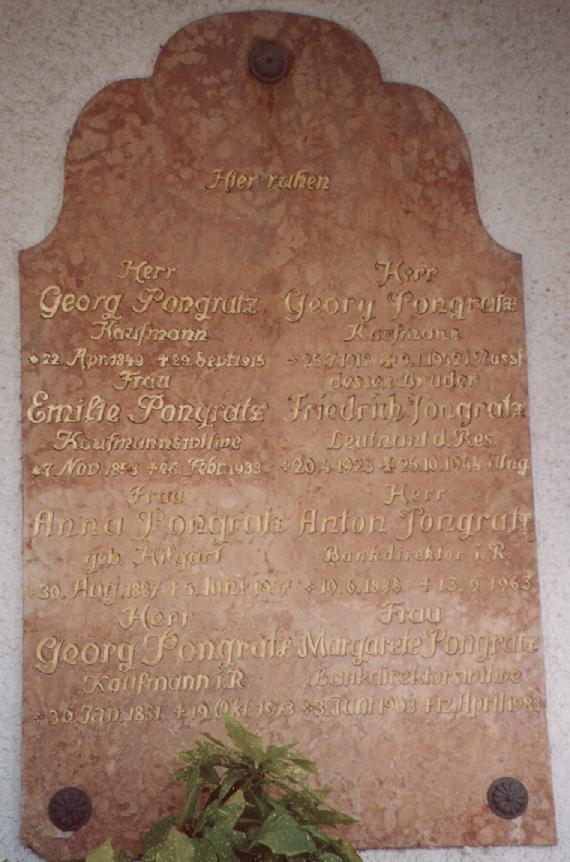 Hier ruhen
Herr
Georg Pongratz
Kaufmann
* 22. Apr. 1849 + 29. Sept. 1915
Frau
Emilie Pongratz
Kaufmannswitwe
* 7. Nov. 1853 + 26. Febr. 1933
Frau
Anna Pongratz
geb.
* 30. Aug. 1887 + 5. Juni
Herr
Georg Pongratz
Kaufmann i. R.
* 30. Jan. 1881 + 19. Okt. 1973
Herr
Georg Pongratz
Kaufmann
1912 1942 i. Russl.
dessen Bruder
Friedrich Pongratz
Leutnant d. Res.
* 20.4.1923 26.10.1944 i. Ung.
Herr
Anton Pongratz
Bankdirektor i. R.
* 10.6.1888 + 13.9.1963
Frau
Margarete Pongratz
Bankdirektorswitwe
* 3. Juni 1903 + 12. April